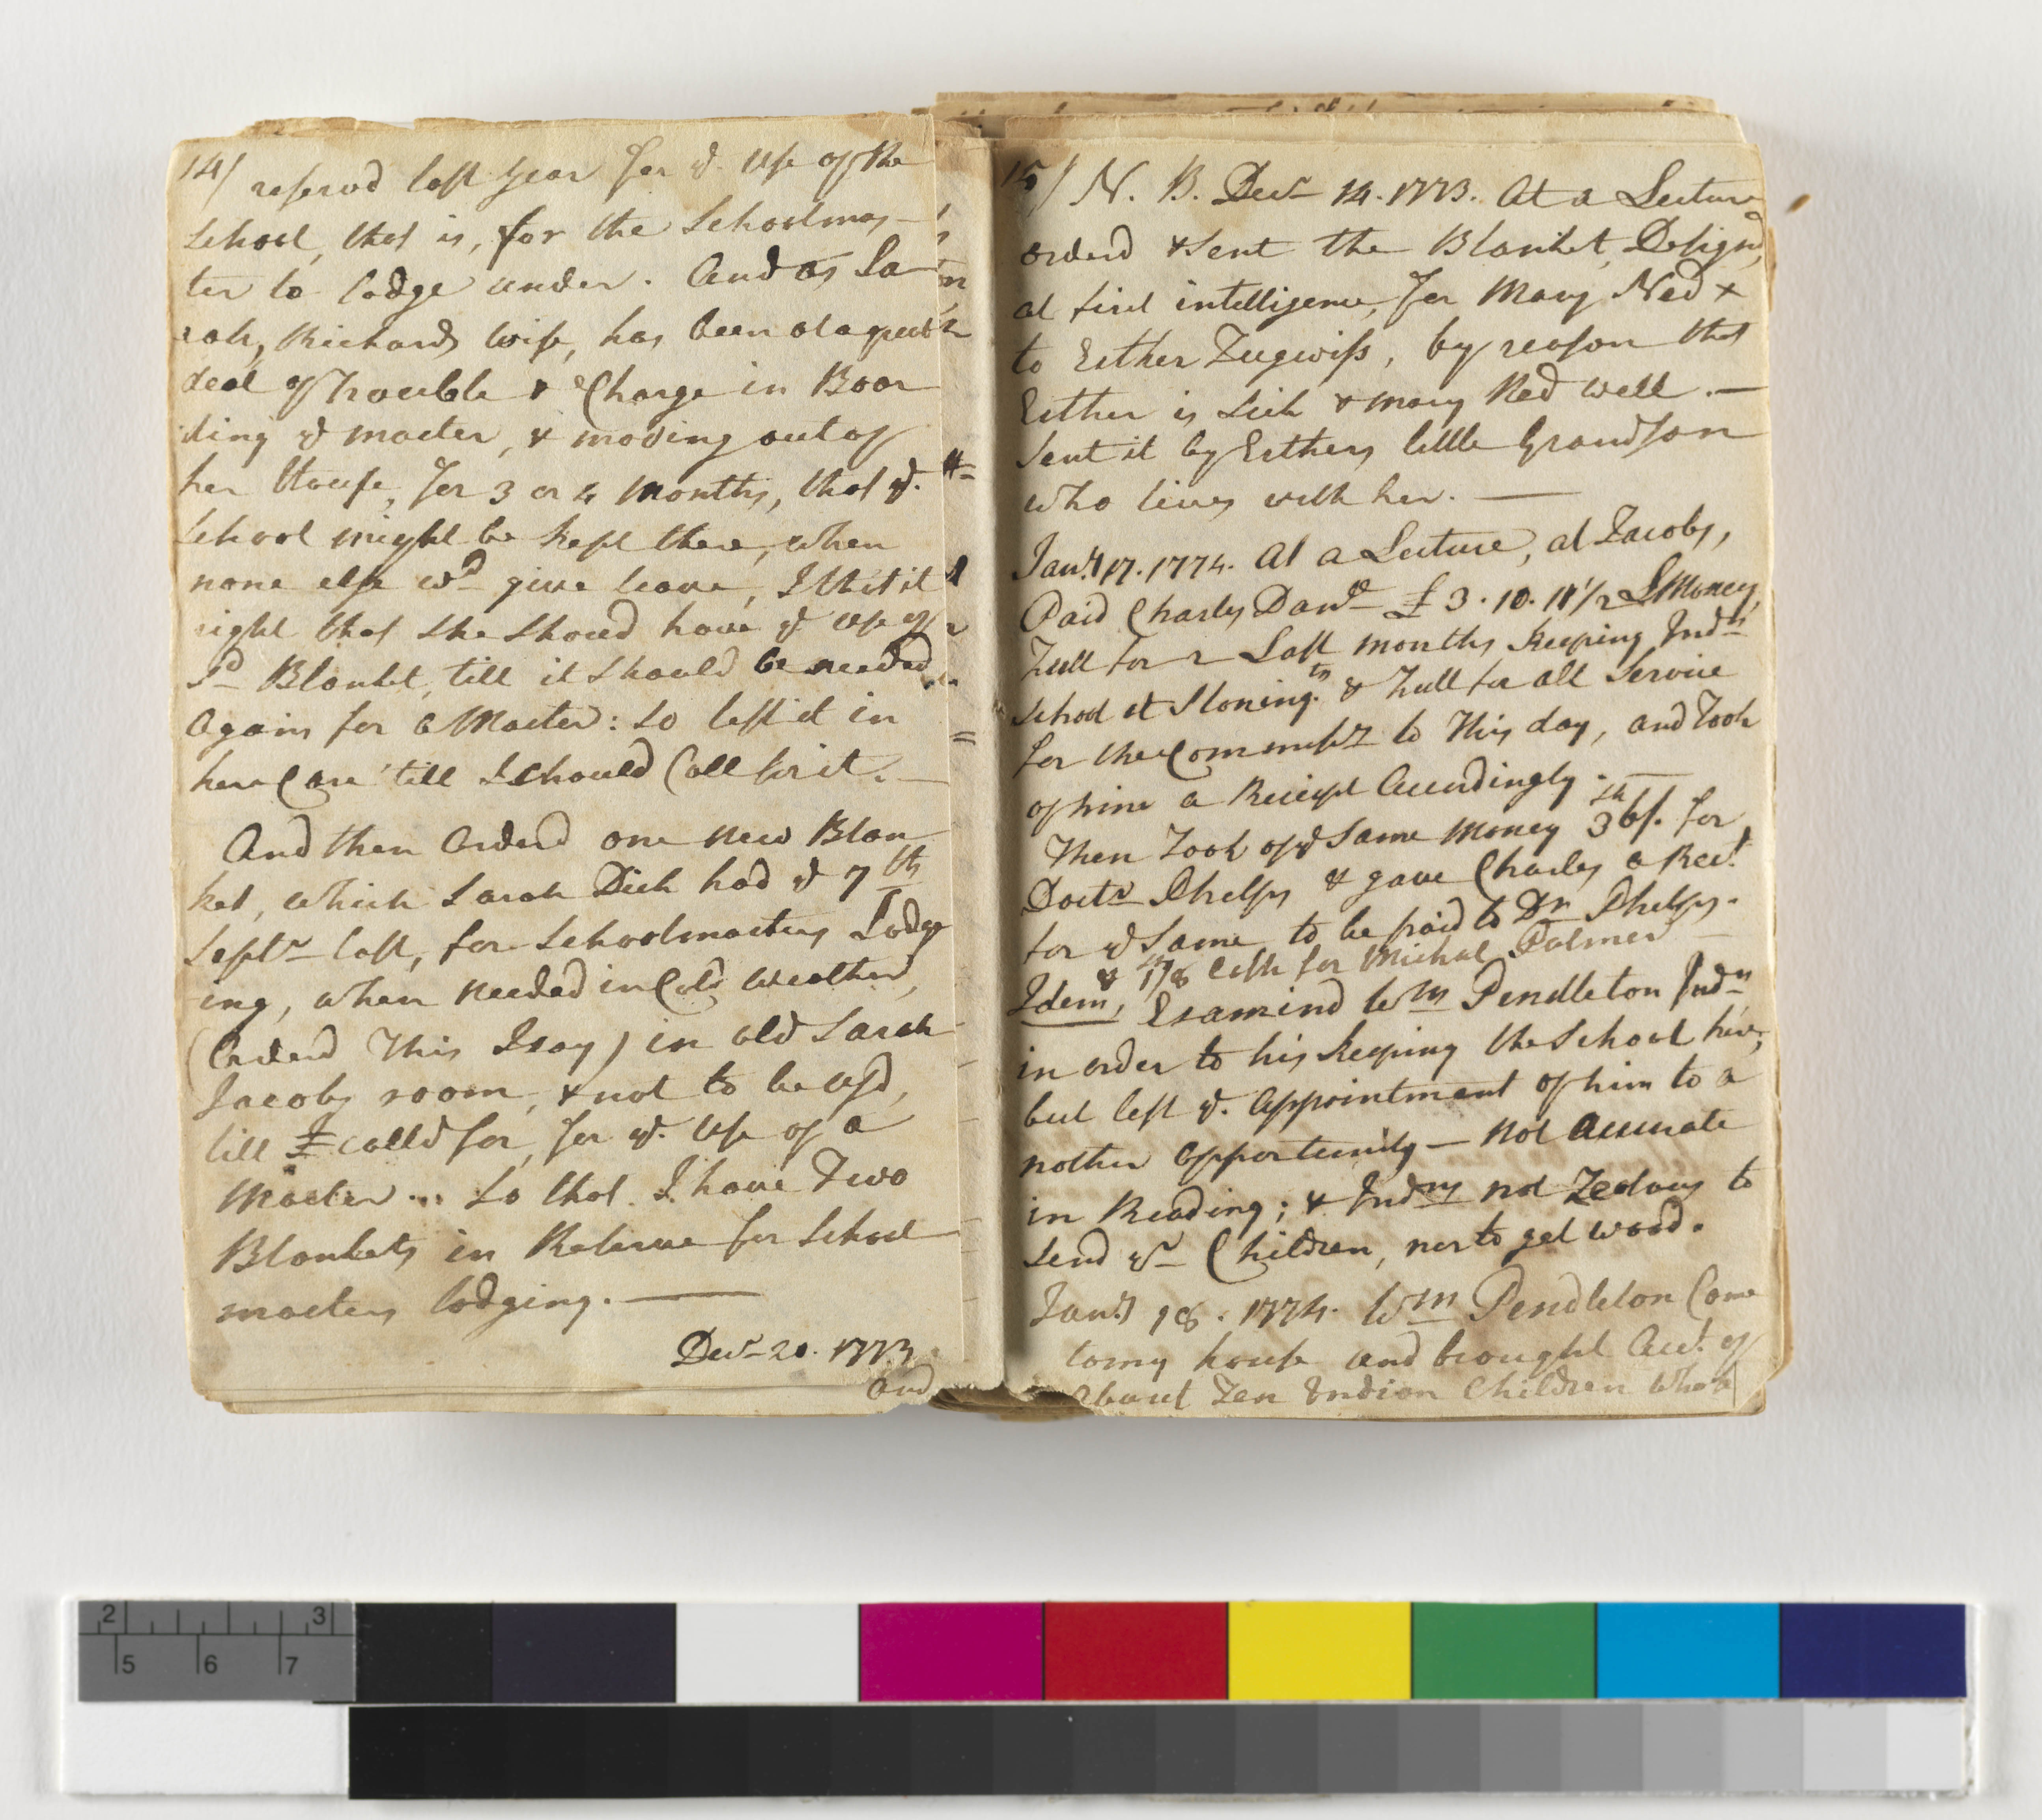 14/ reserved last year for ye. Use of the
School, that is, for the Schoolmas-
ter to lodge under. And as Sa-
rah, Richards wife, has been at a great
deal of Trouble & Charge in Boar
ding ye master, & moving out of
her House, for 3 or 4 Months, that ye.
School might be kept there, when
none else wd give leave, I tho't it
right that she should have ye Use of
sd Blanket, till it should be needed
again for a Master: so left it in
her Care till I should Call for it.
And then Orderd one new Blan
ket, which Sarah Dick had ye 7th
Septr last, for Schoolmasters Lodg
ing, when needed in Cold weather,
(Orderd This I say) in old Sarah
Jacobs room, & not to be usd,
till I calld for, for ye. Use of a
Master... So that I have Two
Blankets in Reserve for School
masters lodging.
Decr 20. 1773
and
15/ N. B. Decr 14. 1773. At a Lecture
orderd & sent the Blanket, Design'd
at first intelligence, for Mary Ned &
to Esther Tugwiss, by reason that
Esther is sick & mary Ned well.
Sent it by Esthers little Grandson
who lives with her.
Jany 17. 1774. At a Lecture, at Jacobs,
Paid Charles Dand £3. 10. 11 1/2 LMoney,
full for 2 Last months keeping Indn
School at Stoningtn & full for all Service
for the Commissrs to This day, and Took
of him a Receipt Accordingly.
Then Took of ye same money 36/. for
Doctr Phelps & gave Charles a Rect
for ye Same to be paid to Dr Phelps.
& 1/8 Cash for Michal Palmer
Idem, Examind Wm Pendleton Indn
in order to his keeping the School here,
but left ye. Appointment of him to a
nother Opportunity — Not Accurate
in Reading; & Indns not Zealous to
send yr Children, nor to get wood.
Jany 18. 1774. Wm Pendleton Came
to my house and brought Acct. of
about Ten Indian Children who
2
3
5
6
7